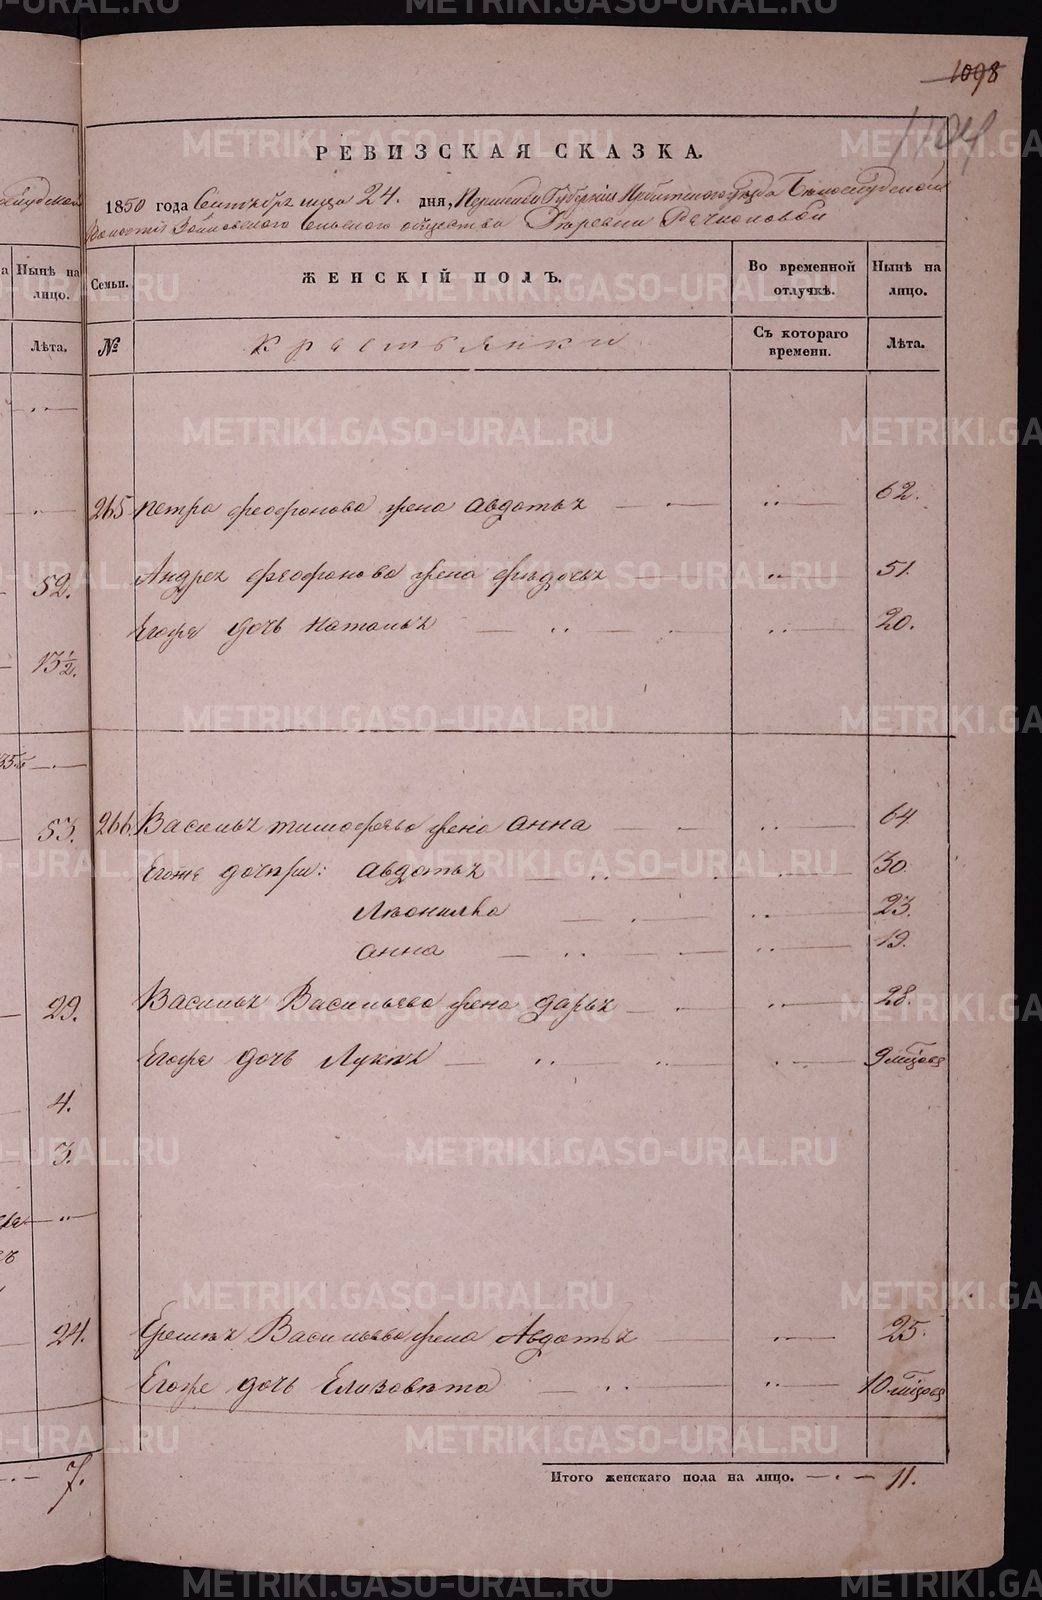 1098
1104
РЕВИЗСКАЯ СКАЗКА.
1850 года Сентября мца 24. дня, Пермской Губернiи Ирбитского уезда Белослудской
Волости Зайковского Сельского общества Деревни Речкаловой
Семьи. ЖЕНСКIЙ ПОЛЪ. Во временной отлучкѣ. Нынѣ на лицо.
№ Крестьянки Съ котораго времени. Лѣта.
265 Петра Феофанова жена Авдотья 62.
Андрея Феофанова жена Федосья 51.
Егоже дочь Наталья 20.
266. Василья Тимофеева жена Анна 64
Егоже дочери: Авдотья 30.
Леонилла 23.
Анна 19.
Василья Васильева жена Дарья 28.
Егоже дочь Лукия 9 мцовъ
Васильева жена Авдотья 25.
Егоже дочь Елизовета 10. мцовъ
Итого женскаго пола на лицо. 11.
Нынѣ на лицо.
Лѣта.
52.
13½.
53.
29.
4.
3.
24.
7.
METRIKI.GASO-URAL.RU